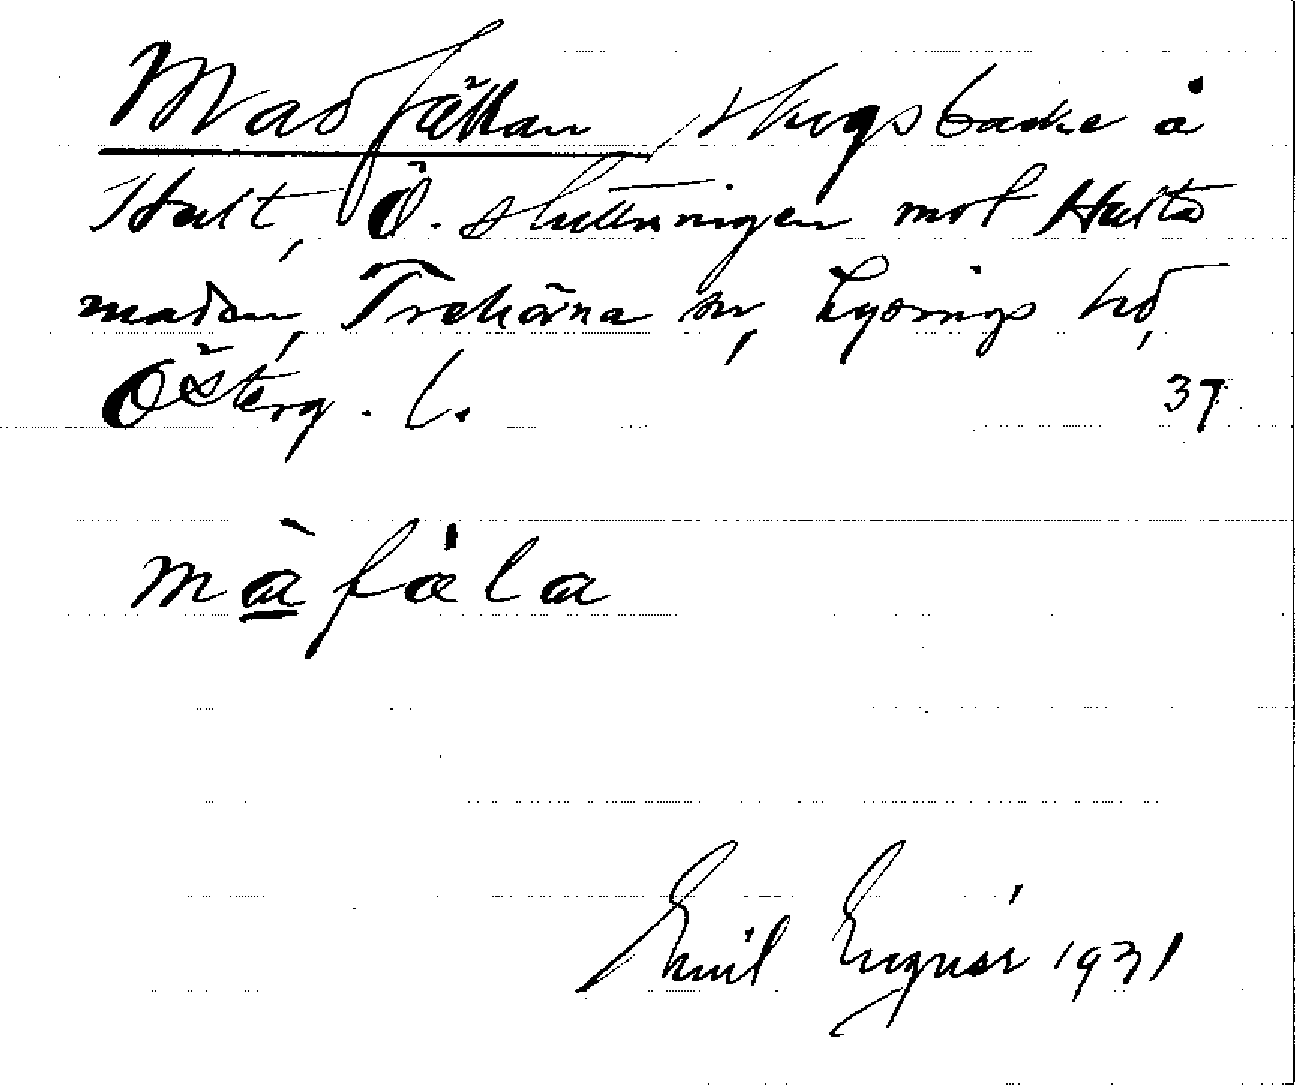 Madfållan, skogsbacke å
Hult, Ö. sluttningen mot Hulta
maden, Trehörna sn, Lysings hd,
Österg. l. 37
màfåla
Emil Engnér 1931